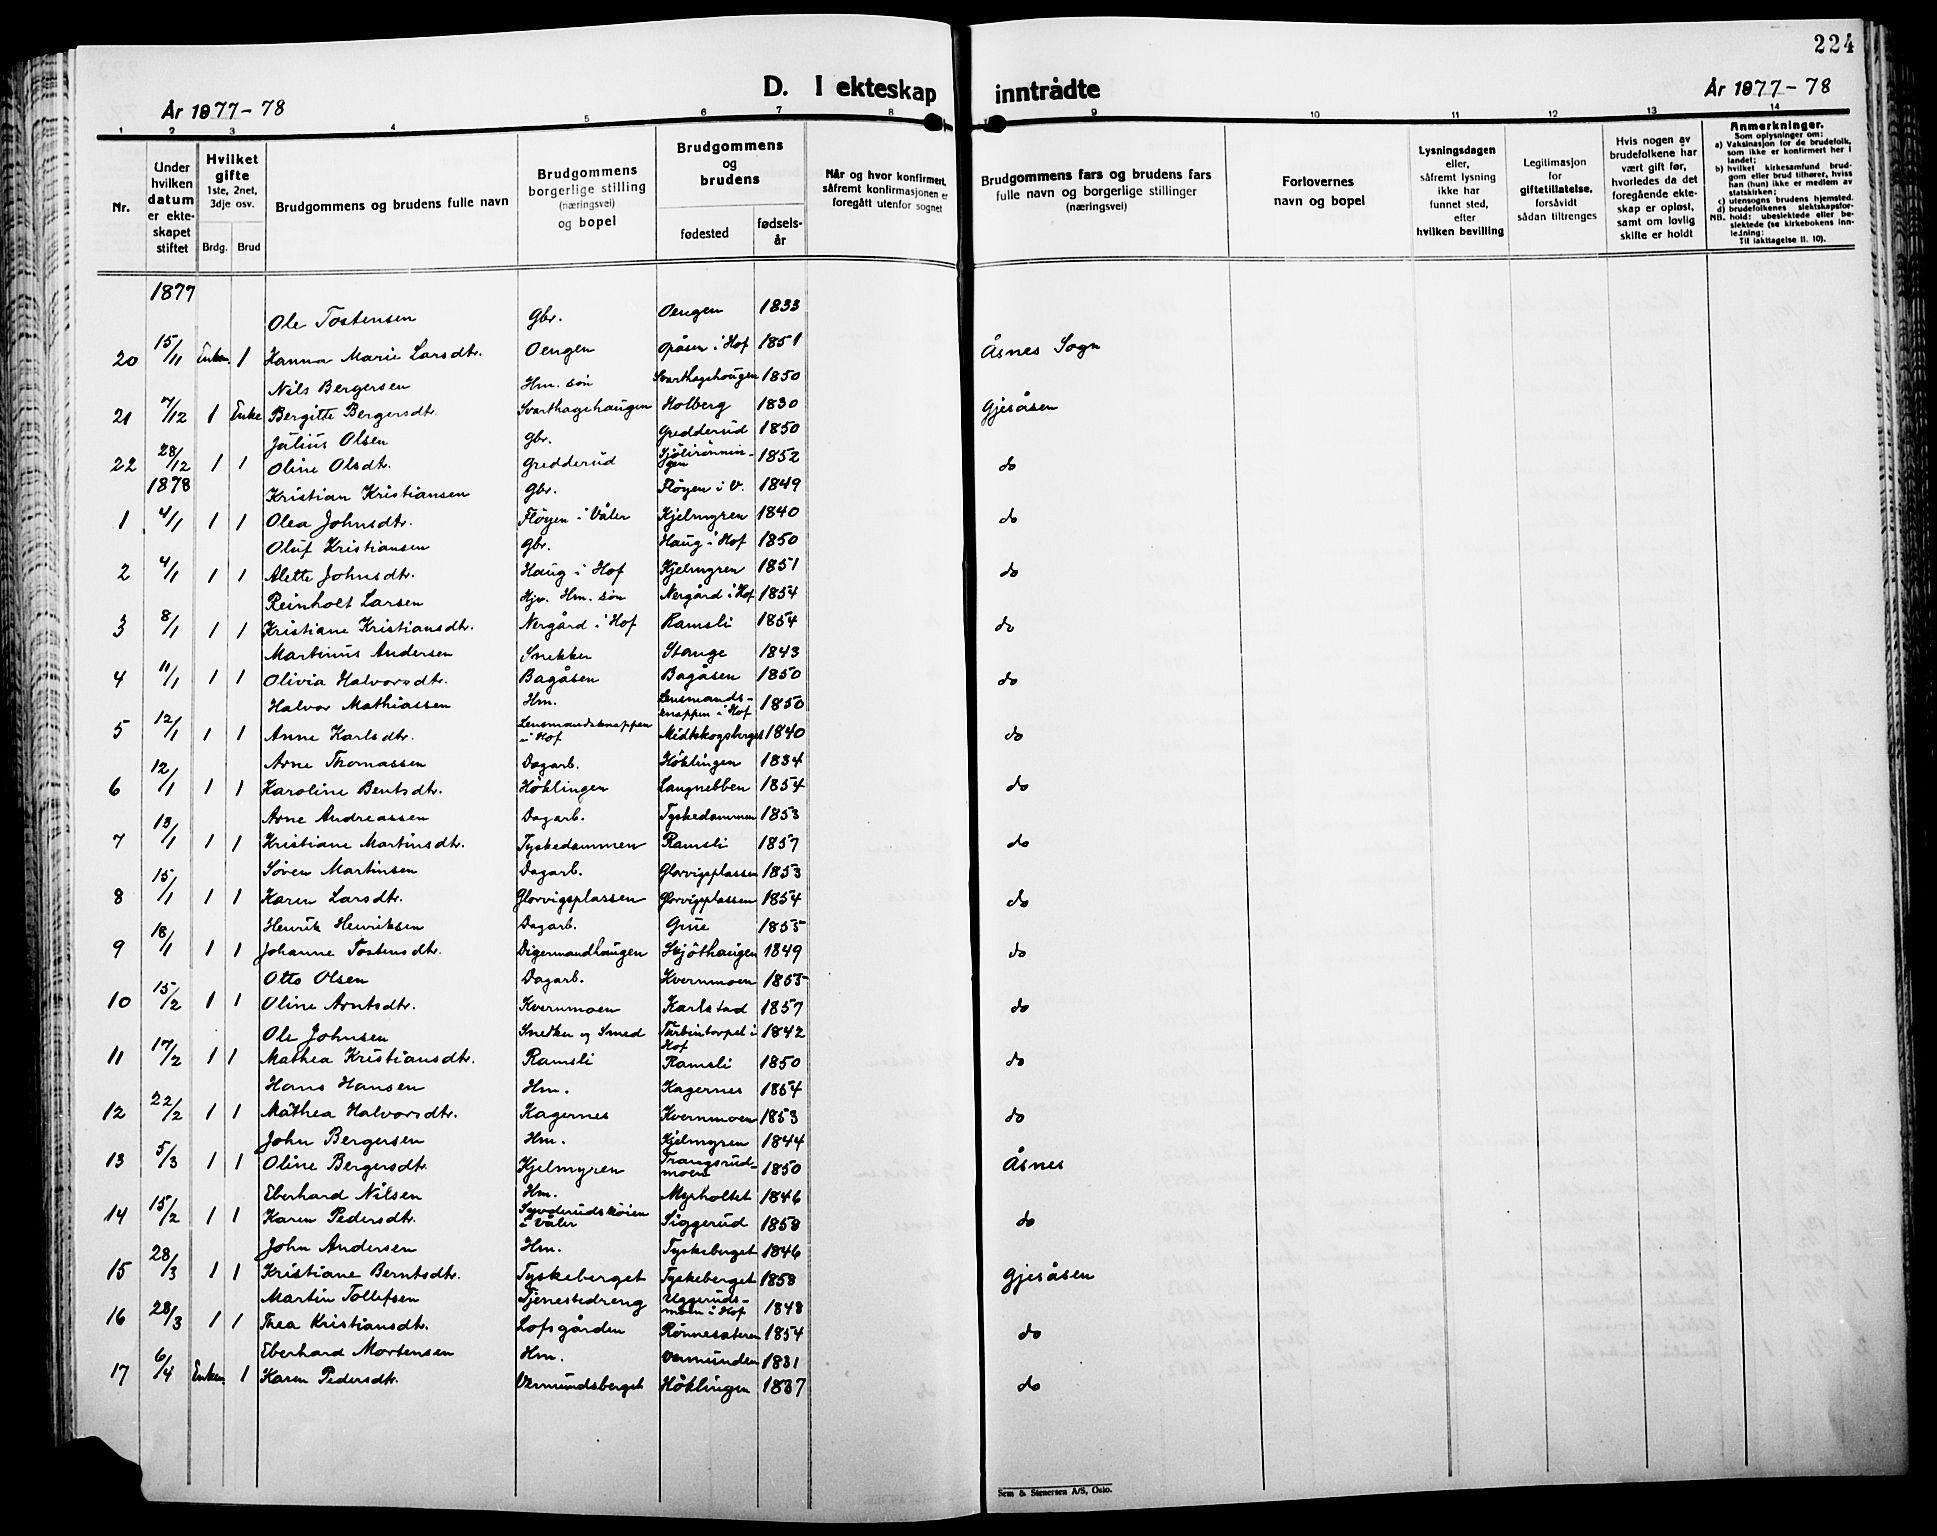 224
D. I ekteskap inntrådte
År 1877-78
År 1877-78
1 2 3 4 5 6 7 8 9 10 11 12 13 14
Nr.
Under hvilken datum er ekteskapet stiftet
Hvilket gifte 1ste, 2net, 3dje osv.
Brdg. Brud
Brudgommens og brudens fulle navn
Brudgommens borgerlige stilling (næringsvei) og bopel
Brudgommens og brudens
fødested
fødselsår
Når og hvor konfirmert, såfremt konfirmasjonen er foregått utenfor sognet
Brudgommens fars og brudens fars fulle navn og borgerlige stillinger (næringsvei)
Forlovernes navn og bopel
Lysningsdagen eller, såfremt lysning ikke har funnet sted, efter hvilken bevilling
Legitimasjon for giftetillatelse, forsåvidt sådan tiltrenges
Hvis nogen av brudefolkene har vært gift før, hvorledes da det foregående ekteskap er opløst, samt om lovlig skifte er holdt
Anmerkninger.
Som oplysninger om:
a) Vaksinasjon for de brudefolk, som ikke er konfirmert her i landet;
b) hvilket kirkesamfund brudgom eller brud tilhører, hvis han (hun) ikke er medlem av statskirken;
c) utensogns brudens hjemsted.
d) brudefolkenes slektskapsforhold: ubeslektede eller beslektede (se kirkebokens innledning:
NB. Til iakttagelse II. 10).
1877
Ole Tostensen Gbr. Oengen 1833
20 15/11 Enkem. 1 Hanna Marie Larsdtr. Oengen Opåsen i Hof 1851 Åsnes Sogn
Nils Bergersen Hm. søn Svarthagehaugen 1850
21 7/12 1 Enke Bergitte Bergersdtr. Svarthagehaugen Holberg 1830 Gjesåsen
Julius Olsen Gbr. Gredderud 1850
22 28/12 1 1 Oline Olsdtr. Gredderud Sjölirönningen 1852 do
1878
Kristian Kristiansen Gbr. Fløyen i V. 1849
1 4/1 1 1 Olea Johnsdtr. Fløyen i Våler Kjelmyren 1840 do
Oluf Kristiansen Gbr. Haug i Hof 1850
2 4/1 1 1 Alette Johnsdtr. Haug i Hof Kjelmyren 1851 do
Reinholt Larsen Hjv. Hm. søn Nergård i Hof 1854
3 8/1 1 1 Kristiane Kristiansdtr. Nergård i Hof Ramsli 1854 do
Martinus Andersen Snekker Stange 1843
4 11/1 1 1 Olivia Halvorsdtr. Bagåsen Bagåsen 1850 do
Halvor Mathiassen Hm. Lensmandsknappen i Hof 1850
5 12/1 1 1 Anne Karlsdtr. Lensmandsknappen i Hof Midtskogsberget 1840 do
Arne Thomassen Dagarb. Höklingen 1834
6 12/1 1 1 Karoline Bentsdtr. Höklingen Langnebben 1854 do
Arne Andreassen Dagarb. Tyskedammen 1853
7 13/1 1 1 Kristiane Martinsdtr. Tyskedammen Ramsli 1857 do
Søren Martinsen Dagarb. Glorvigsplassen 1853
8 15/1 1 1 Karen Larsdtr. Glorvigsplassen Glorvigsplassen 1854 do
Henrik Henriksen Dagarb. Grue 1855
9 18/1 1 1 Johanne Tostensdtr. Digermandhaugen Skjöthaugen 1849 do
Otto Olsen Dagarb. Kvernmoen 1855
10 15/2 1 1 Oline Arntsdtr. Kvernmoen Karlstad 1857 do
Ole Johnsen Snedker og Smed Torbintorpet i Hof 1842
11 17/2 1 1 Mathea Kristiansdtr. Ramsli Ramsli 1850 do
Hans Hansen Hm. Kagernes 1854
12 22/2 1 1 Mathea Halvorsdtr. Kagernes Kvernmoen 1853 do
John Bergersen Hm. Kjelmyren 1844
13 5/3 1 1 Oline Bergersdtr. Kjelmyren Trangsrudmoen 1850 Åsnes
Eberhard Nilsen Hm. Myrholtet 1846
14 15/2 1 1 Karen Pedersdtr. i Våler Siggerud 1858 do
John Andersen Hm. Tyskeberget 1846
15 28/3 1 1 Kristiane Berntsdtr. Tyskeberget Tyskeberget 1858 Gjesåsen
Martin Tollefsen Tjenestedreng Uggerudsmoen i Hof 1848
16 28/3 1 1 Thea Kristiansdtr. Lofsgården Rönnesateren 1854 do
Eberhard Mortensen Hm. Vermunden 1831
17 6/4 Enkem 1 Karen Pedersdtr. Vermundsberget Höklingen 1837 do
Sem & Stenersen A/S, Oslo.